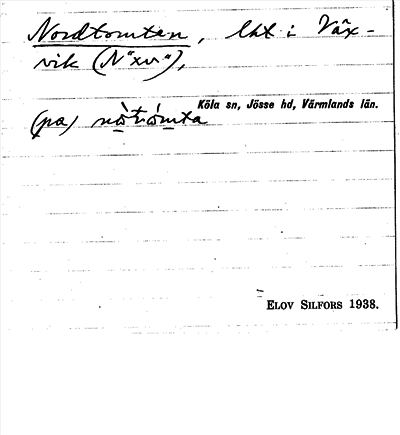 Nordtomten, lht i Växvik
(N"xv"),
Köla sn, Jösse hd, Värmlands län.
(pa) nòtómta
ELOV SILFORS 1938.